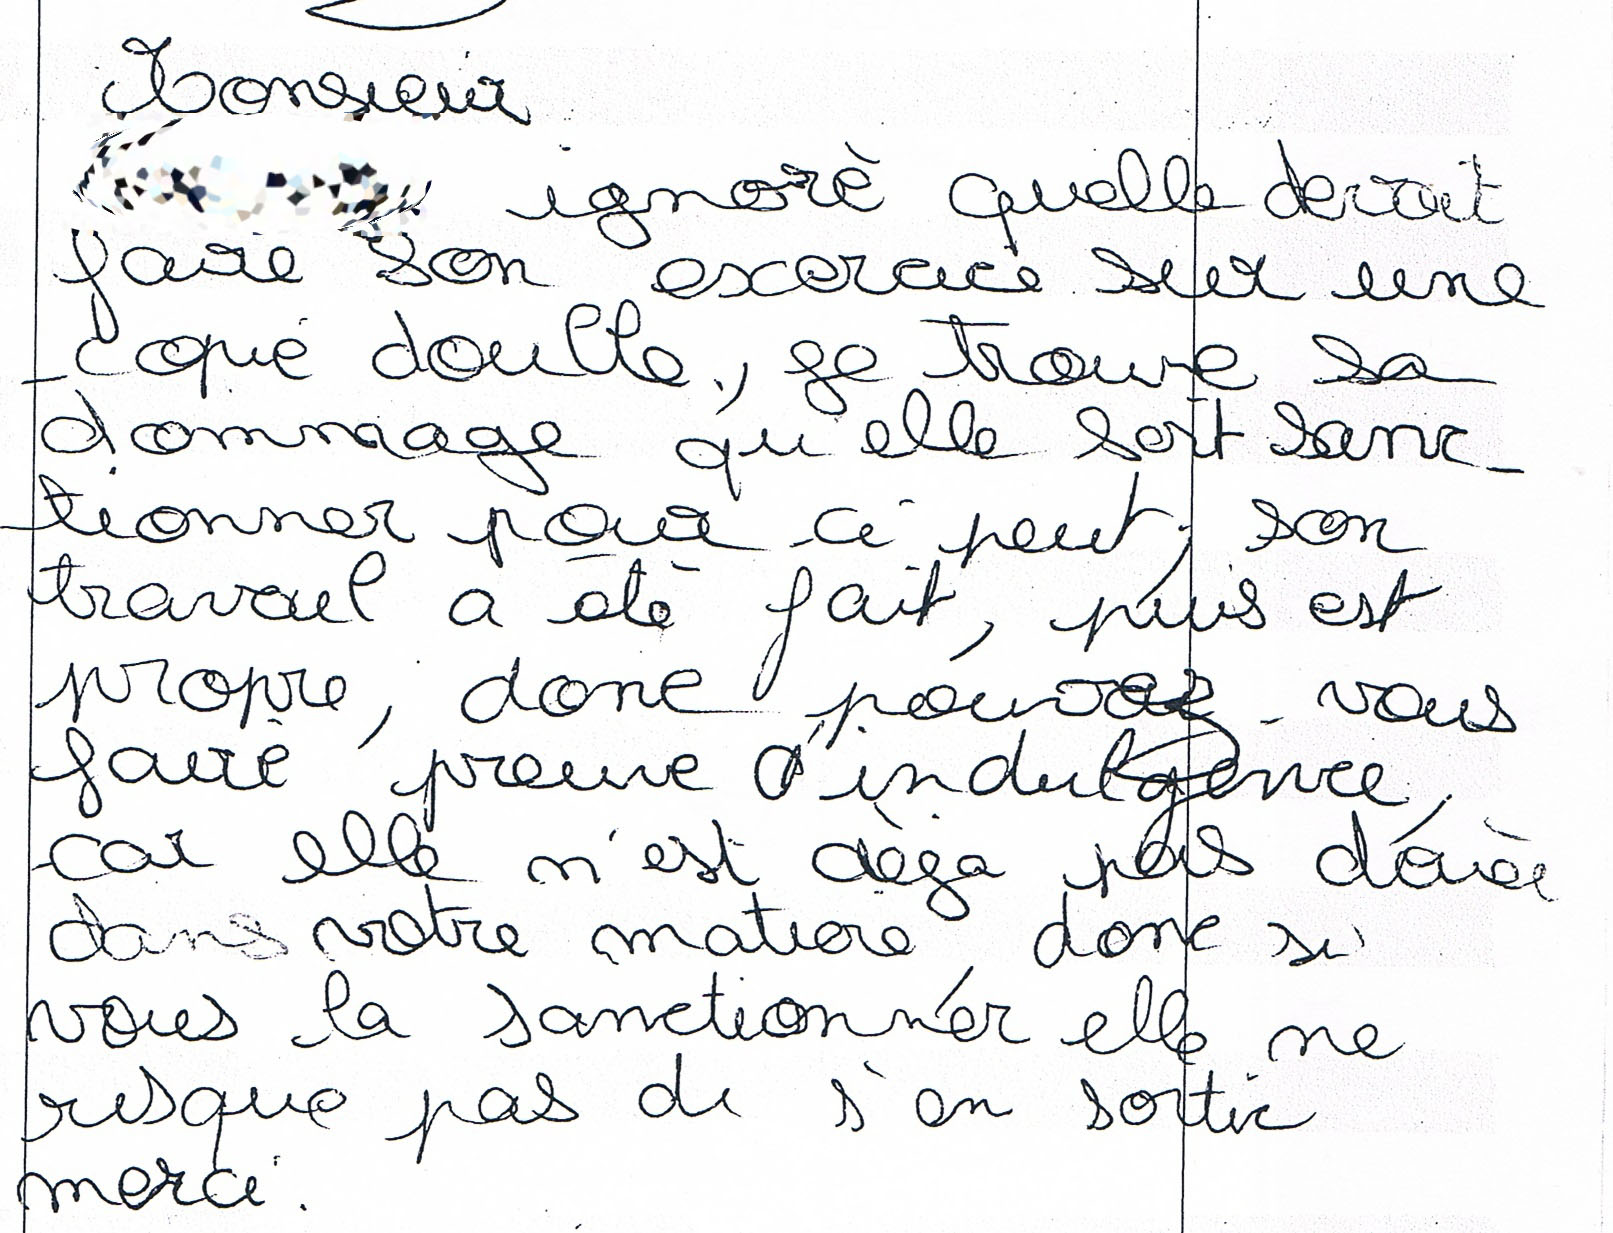 Monsieur
ignorè quelle devait
faire son exercice sur une
copie double, je trouve sa
dommage qu'elle soit sanc-
tionner pour ci peut, son
travail a été fait, puis est
propre, donc pouvez-vous
faire preuve d'indulgence,
car elle n'est dèja pas
dans votre matière donc si
vous la sanctionner elle ne
risque pas de s'en sortir
merci.